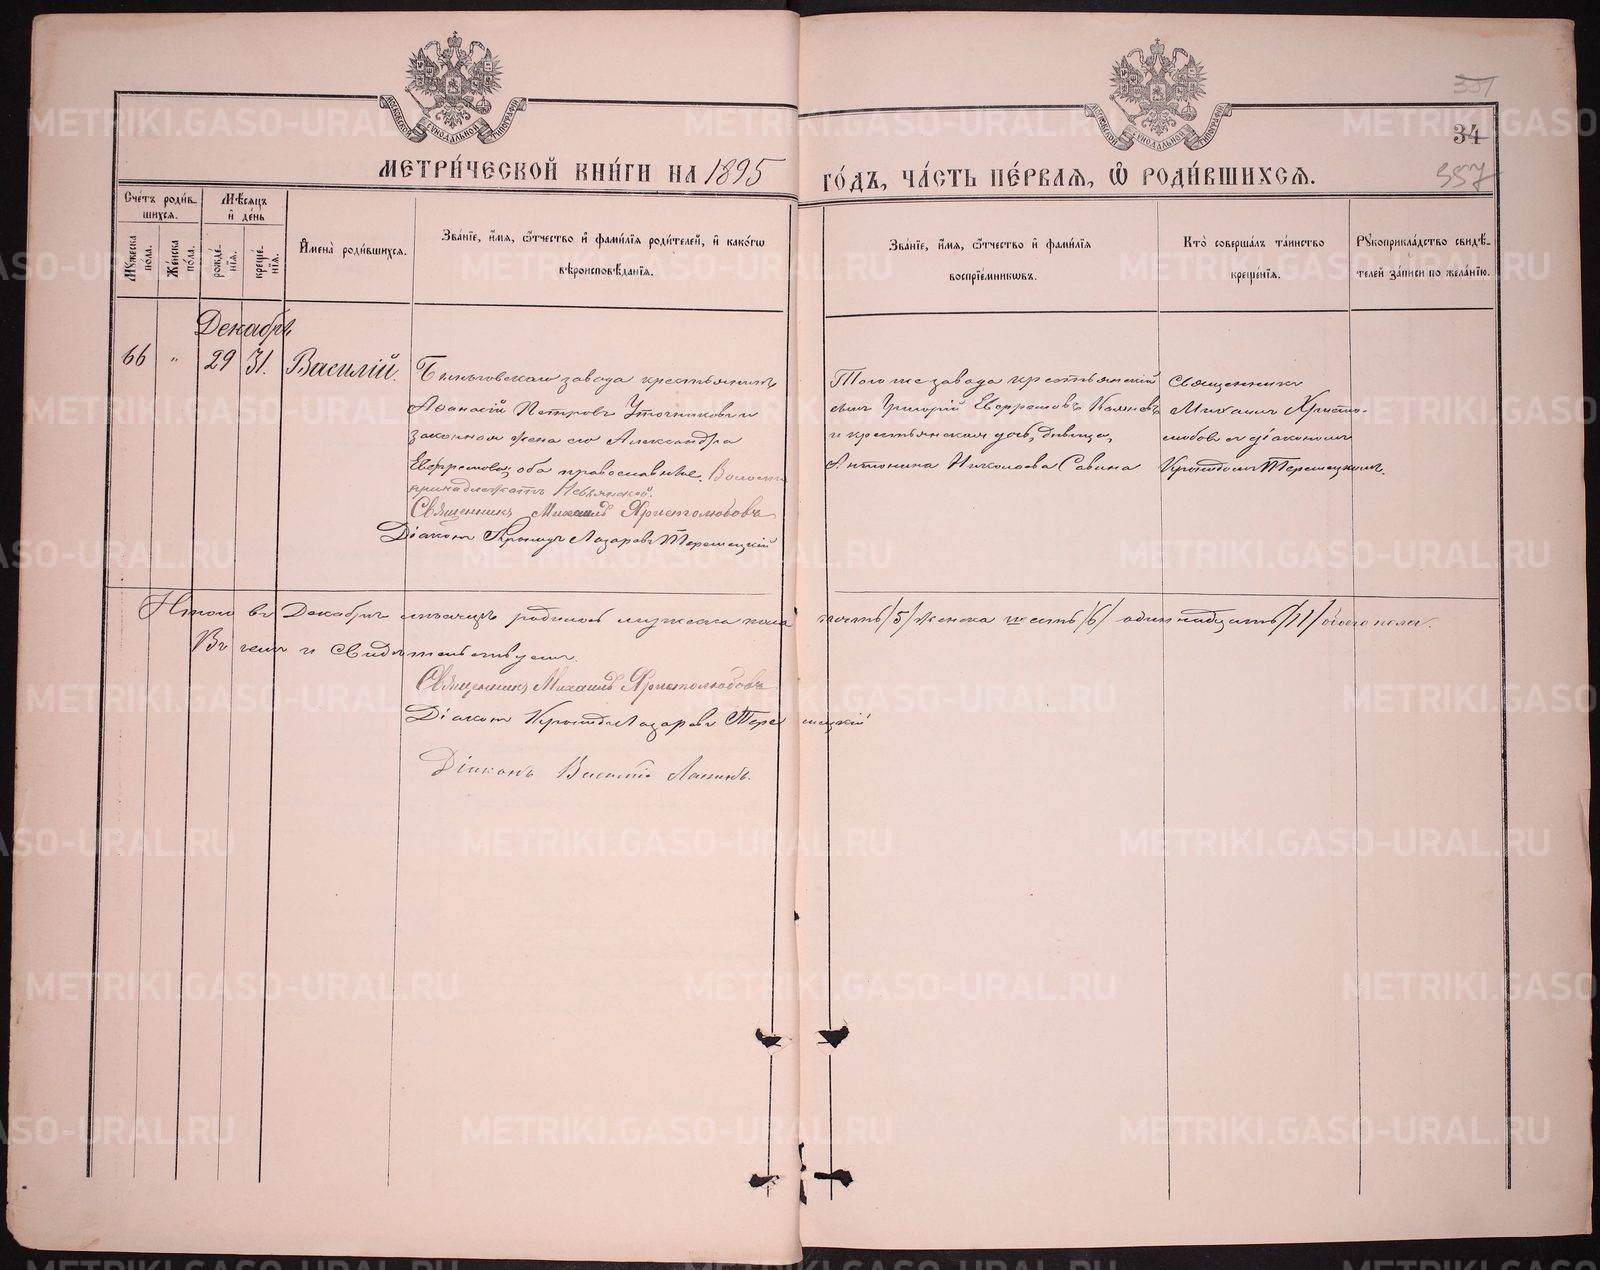 МЕТРИ́ЧЕСКОЙ КНИ́ГИ НА 1895
ГО́ДЪ, ЧА́СТЬ ПЕ́РВАЯ, Ѡ РОДИ́ВШИХСЯ.
34
357
Сче́тъ роди́в-
шихся.
Мѣ́сяцъ
и҆ де́нь
Му́жеска по́ла.
Же́нска по́ла.
рожде́-
нїя.
креще́-
нїя.
И҆мена̀ роди́вшихся.
Зва́нїе, и҆́мя, ѻ҆́тчество и҆ фами́лїя роди́телей, и҆ како́гѡ
вѣроисповѣ́данїя.
Зва́нїе, и҆́мя, ѻ҆́тчество и҆ фами́лїя
воспрїе́мникѡвъ.
Кто̀ соверша́лъ та́инство
креще́нїя.
Рꙋкоприкла́дство свидѣ́-
телей за́писи по жела́нїю.
Декабрь
66 " 29 31. Василій.
Быньговскаго завода крестьянинъ
Аѳанасій Петровъ Уточниковъ и
законная жена его Александра
Евфремова, оба православные. Волости
принадлежатъ Невьянской.
Священникъ Михаилъ Христолюбовъ
Діаконъ Лазаревъ
Того же завода крестьянскій
сынъ Григорій Евфремовъ
и крестьянская дочь, дѣвица,
Антонина Николаева Савина
Священникъ
Михаилъ Христо-
любовъ съ діакономъ
Итого въ Декабрѣ мѣсяцѣ родилось мужеска пола пять /5/ женска шесть /6/ одиннадцать /11/ обоего пола.
Въ чемъ и свидѣтельствуемъ.
Священникъ Михаилъ Христолюбовъ
Діаконъ Лазаревъ
Діаконъ Василій
METRIKI.GASO-URAL.RU